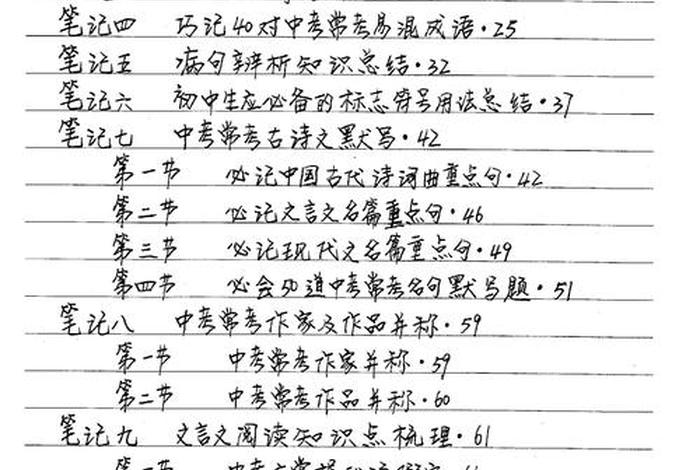 笔记四 巧记40对中考常考易混成语·25
笔记五 病句辨析知识总结·32
笔记六 初中生应必备的标志符号用法总结·37
笔记七 中考常考古诗文默写·42
第一节 必记中国古代诗词曲重点句·42
第二节 必记文言文名篇重点句·46
第三节 必记现代文名篇重点句·49
第四节 必会50道中考常考名句默写题·51
笔记八 中考常考作家及作品并称·59
第一节 中考常考作家并称·59
第二节 中考常考作品并称·60
笔记九 文言文阅读知识点梳理·61